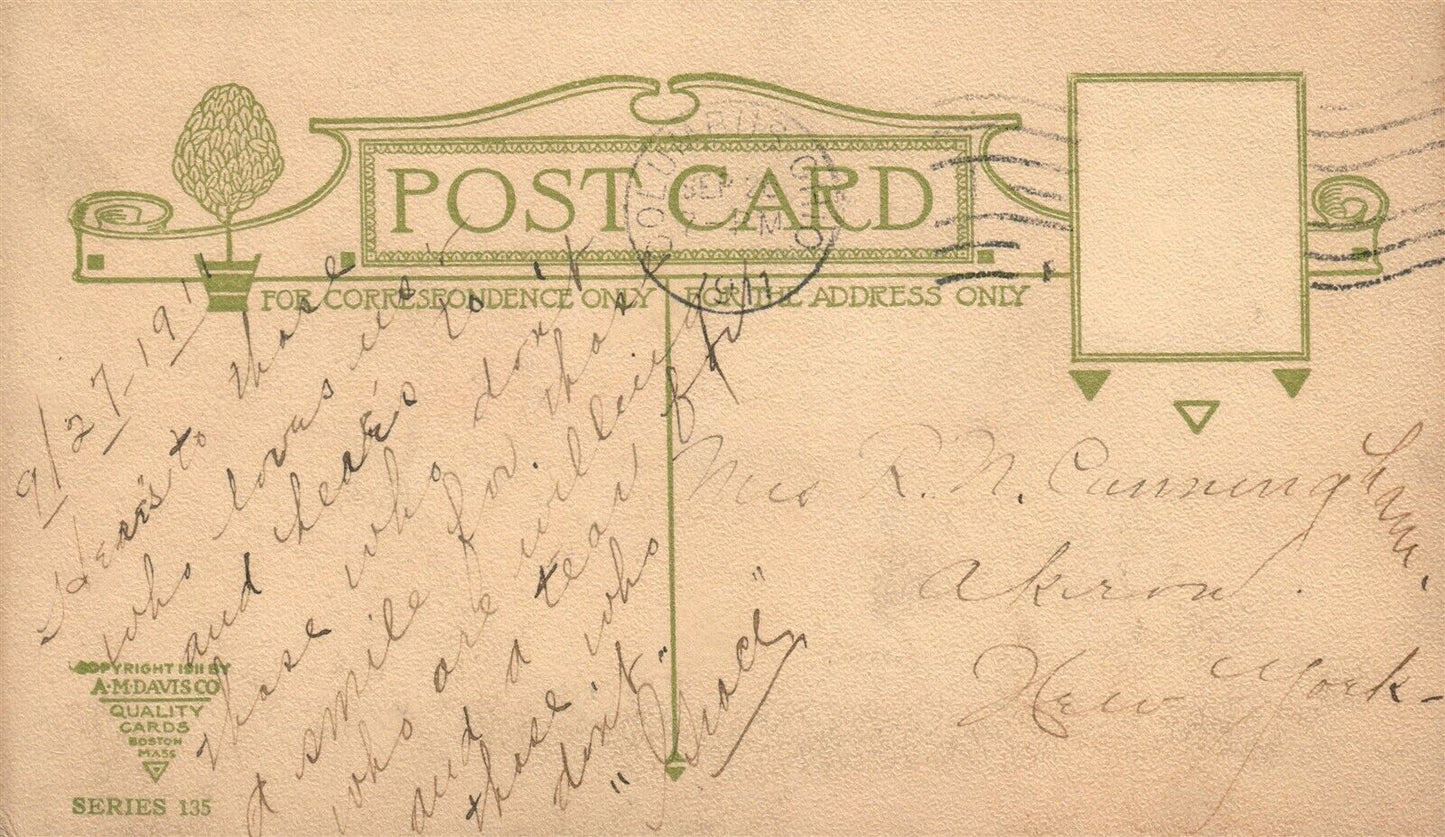 POST CARD
COLUMBUS, OHIO
SEP
PM
1911
FOR CORRESPONDENCE ONLY
FOR THE ADDRESS ONLY
9/27-1911
Here's to those
who loves us
and here's to
those who don't
a smile for those
who are willing
and a tear for
those who
don't.
"Grace"
Mrs R. N. Cunningham,
Akron.
New York-
COPYRIGHT 1911 BY
A·M·DAVIS CO
QUALITY
CARDS
BOSTON
MASS
SERIES 135